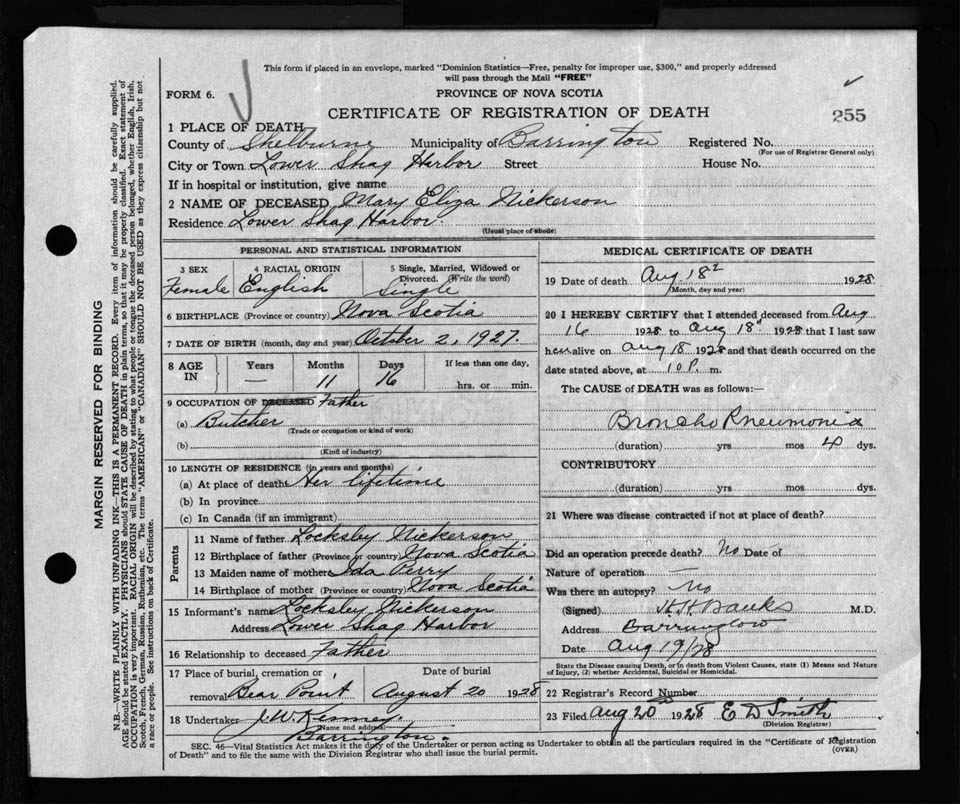 This form if placed in an envelope, marked "Dominion Statistics—Free, penalty for improper use, $300," and properly addressed
will pass through the Mail "FREE"
FORM 6.
PROVINCE OF NOVA SCOTIA
CERTIFICATE OF REGISTRATION OF DEATH
255
1 PLACE OF DEATH
County of Shelburne Municipality of Barrington Registered No.
(For use of Registrar General only)
City or Town Lower Shag Harbor Street House No.
If in hospital or institution, give name
2 NAME OF DECEASED Mary Eliza Nickerson
Residence Lower Shag Harbor.
(Usual place of abode)
PERSONAL AND STATISTICAL INFORMATION
3 SEX 4 RACIAL ORIGIN 5 Single, Married, Widowed or
Divorced (Write the word)
Female English Single
6 BIRTHPLACE (Province or country) Nova Scotia
7 DATE OF BIRTH (month, day and year) October 2, 1927.
8 AGE IN Years Months Days If less than one day,
— 11 16 hrs. or min.
9 OCCUPATION OF DECEASED Father
(a) Butcher
(Trade or occupation or kind of work)
(b)
(Kind of industry)
10 LENGTH OF RESIDENCE (in years and months)
(a) At place of death Her lifetime
(b) In province
(c) In Canada (if an immigrant)
Parents
11 Name of father Locksley Nickerson
12 Birthplace of father (Province or country) Nova Scotia
13 Maiden name of mother Ida Perry
14 Birthplace of mother (Province or country) Nova Scotia
15 Informant's name Locksley Nickerson
Address Lower Shag Harbor
16 Relationship to deceased Father
17 Place of burial, cremation or Date of burial
removal Bear Point August 20 1928
18 Undertaker J. W. Kenney.
Name and address
Barrington.
MEDICAL CERTIFICATE OF DEATH
19 Date of death Aug. 18th 1928
(Month, day and year)
20 I HEREBY CERTIFY that I attended deceased from Aug
16 1928 to Aug 18th 1928 that I last saw
her alive on Aug 18 1928 and that death occurred on the
date stated above, at 10 P. m.
The CAUSE of DEATH was as follows:—
Broncho Pneumonia
(duration) yrs mos 4 dys.
CONTRIBUTORY
(duration) yrs mos dys.
21 Where was disease contracted if not at place of death?
Did an operation precede death? No Date of
Nature of operation
Was there an autopsy? No
(Signed) H H Banks M.D.
Address Barrington
Date Aug 19/28
State the Disease causing Death, or in death from Violent Causes, state (1) Means and Nature
of Injury, (2) whether Accidental, Suicidal or Homicidal.
22 Registrar's Record Number
23 Filed Aug 20th 1928 E D Smith
(Division Registrar)
SEC. 46—Vital Statistics Act makes it the duty of the Undertaker or person acting as Undertaker to obtain all the particulars required in the "Certificate of Registration
of Death" and to file the same with the Division Registrar who shall issue the burial permit. (OVER)
MARGIN RESERVED FOR BINDING
N.B.—WRITE PLAINLY WITH UNFADING INK—THIS IS A PERMANENT RECORD. Every item of information should be carefully supplied.
AGE should be stated EXACTLY. PHYSICIANS should STATE CAUSE OF DEATH in plain terms, so that it may be properly classified. Exact statement of
OCCUPATION is very important. RACIAL ORIGIN will be described by stating to what people or tongue the deceased person belonged, whether English, Irish,
Scotch, French, German, Russian, Ruthenian, etc. The terms "AMERICAN" or "CANADIAN" SHOULD NOT BE USED as they express citizenship but not
a race or people. See instructions on back of Certificate.